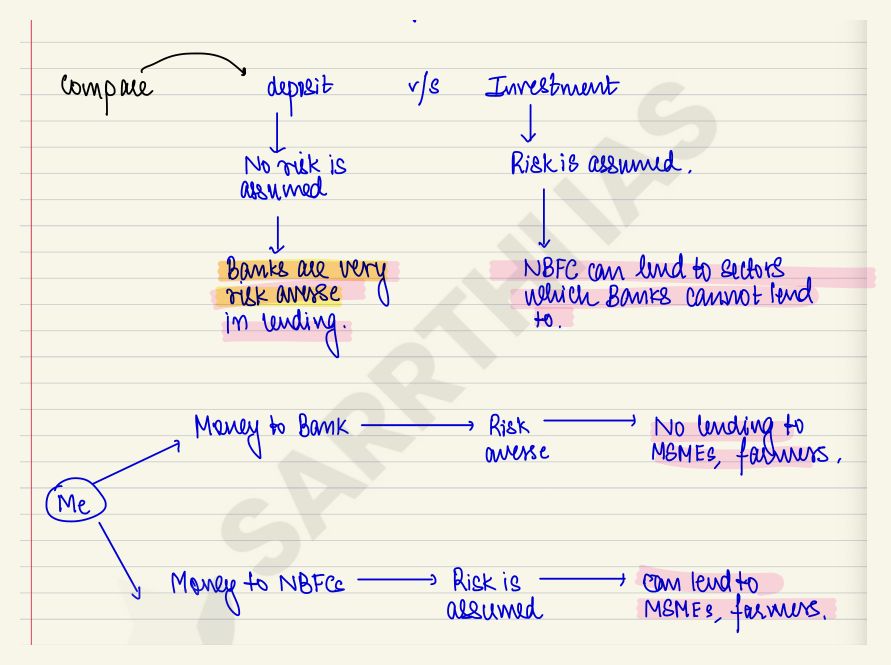 Compare deposit v/s Investment
No risk is
assumed
Risk is assumed.
Banks are very
risk averse
in lending.
NBFC can lend to sectors
which Banks cannot lend
to.
Money to Bank
Risk
averse
No lending to
MSMEs, farmers.
Me
Money to NBFCs
Risk is
assumed
can lend to
MSMEs, farmers.
SARRTHI IAS